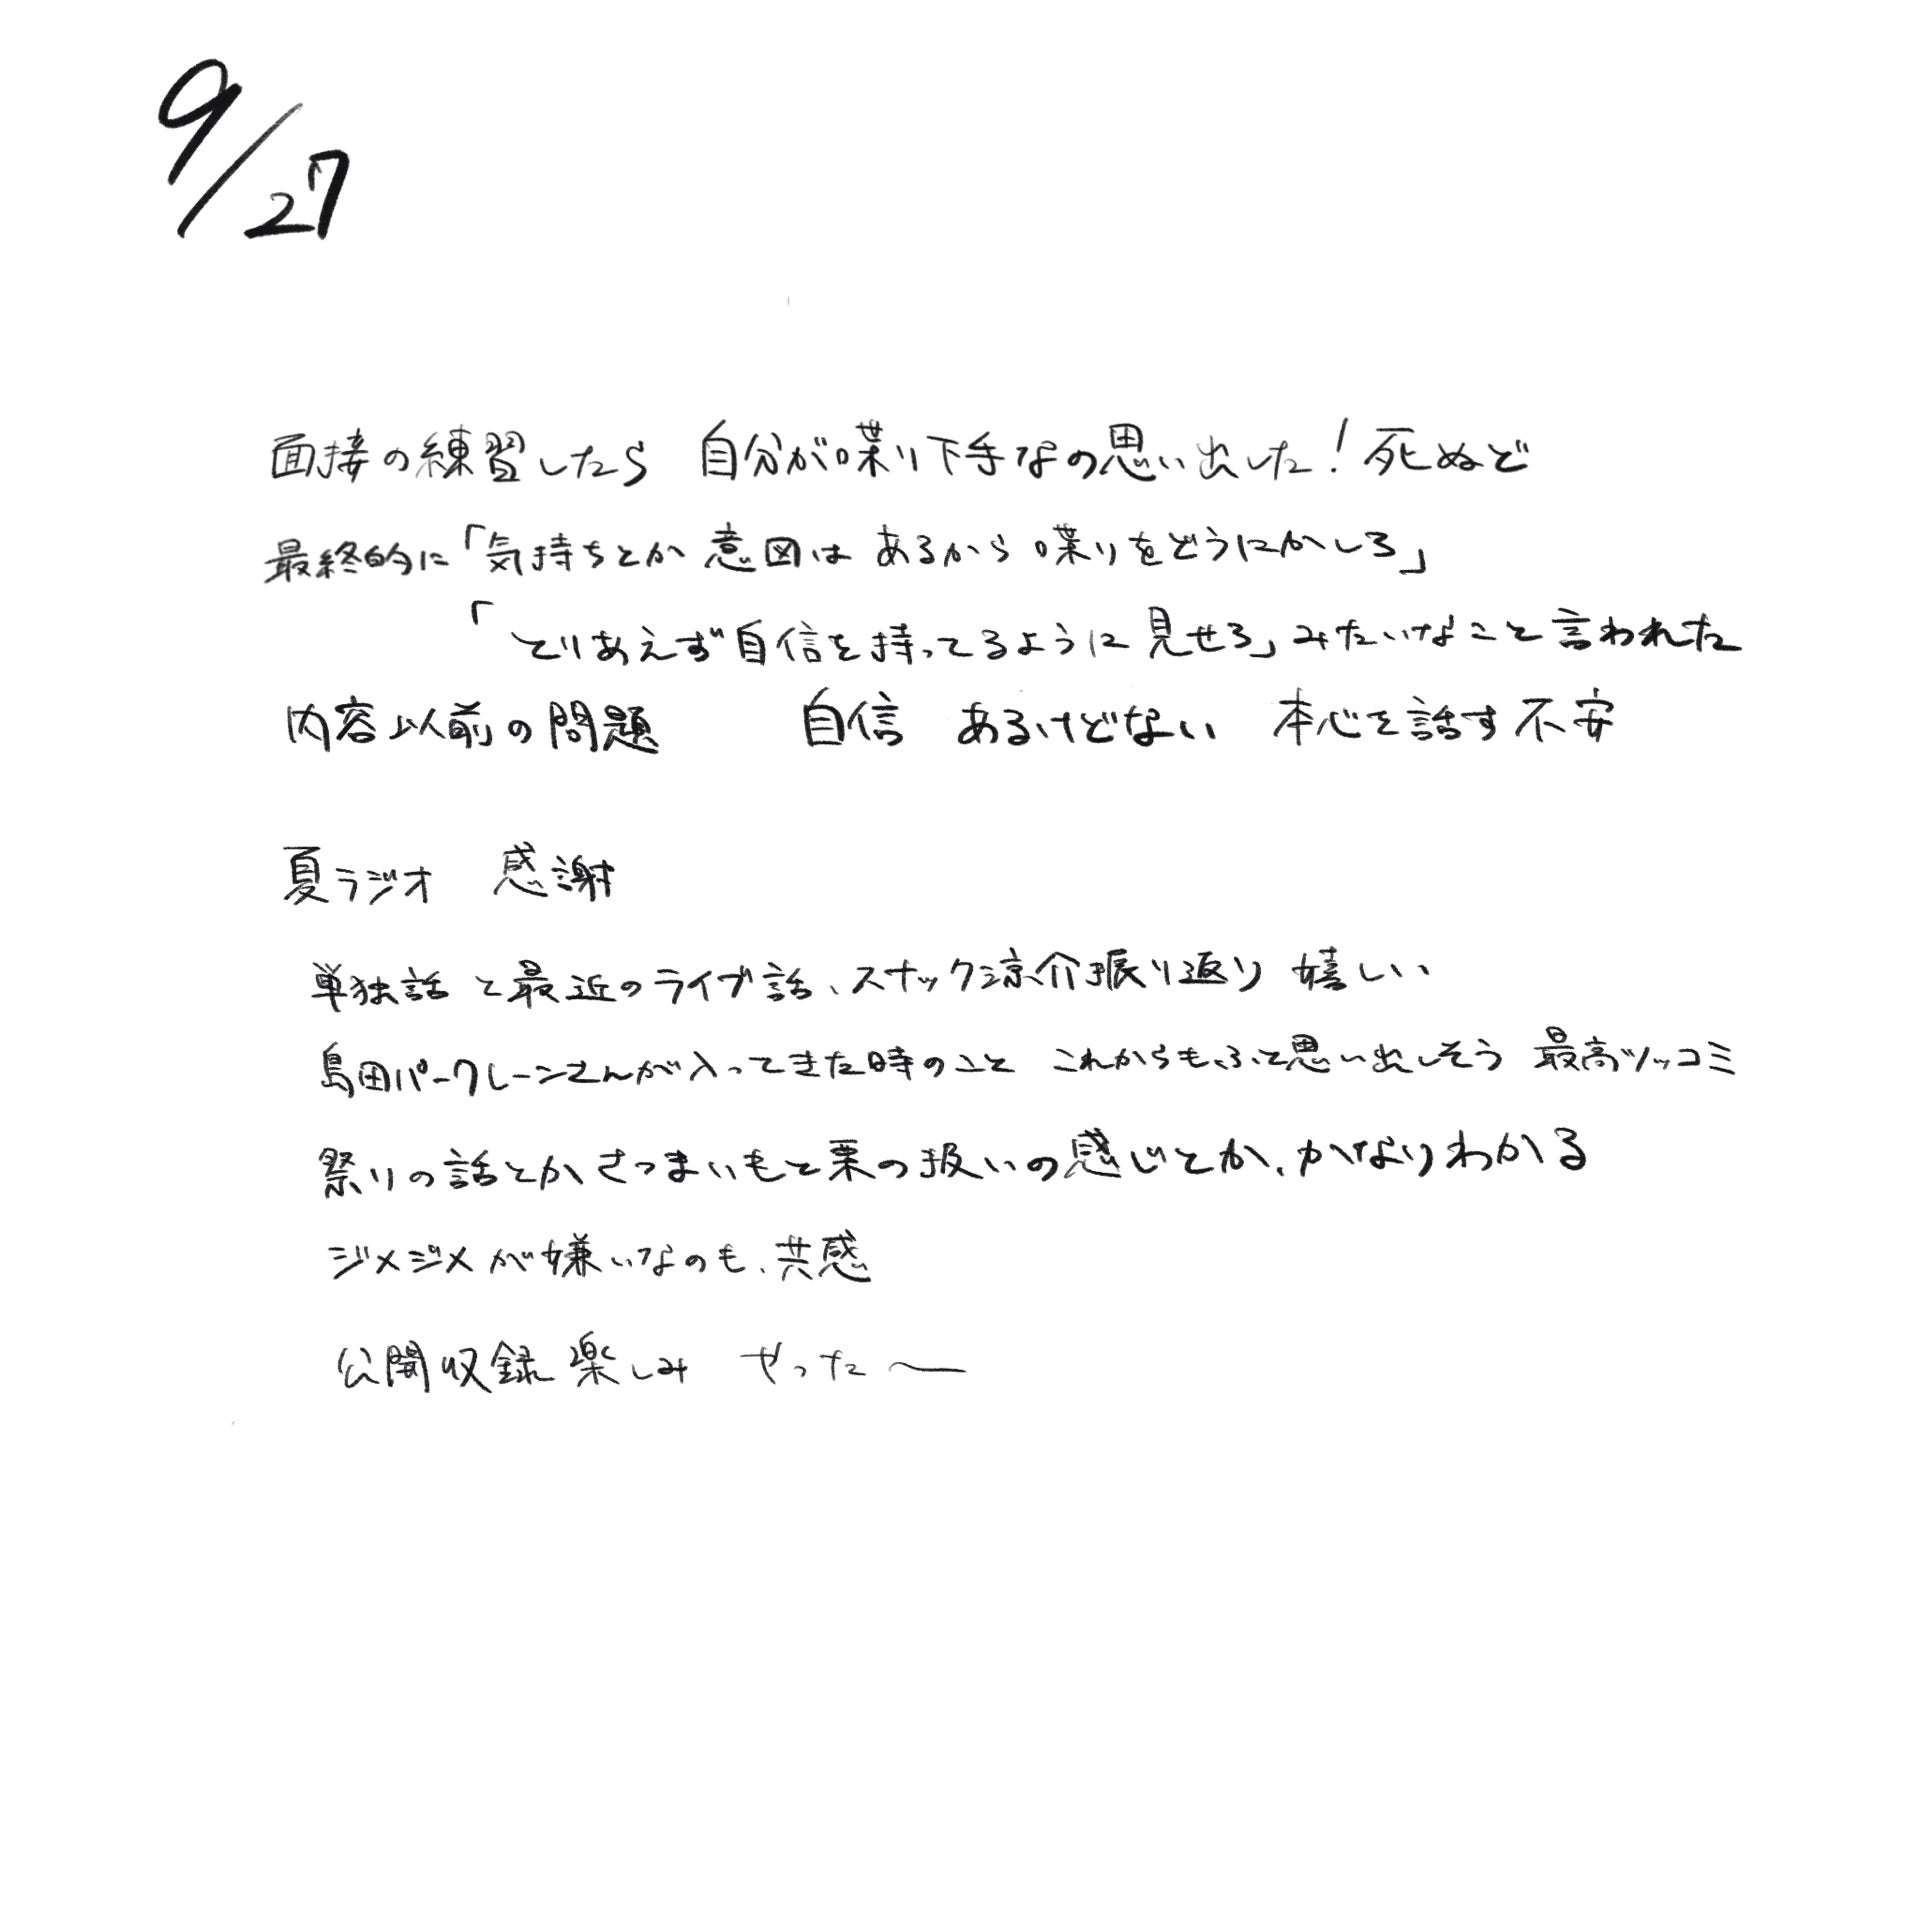 9/27
面接の練習したら 自分が喋り下手なの思い出した！死ぬど
最終的に「気持ちとか意図は あるから喋りをどうにかしろ」
「とりあえず自信を持ってるように見せろ」みたいなこと言われた
内容以前の問題 自信 あるけどない 本心を話す不安
夏ラジオ 感謝
単独話と最近のライブ話、スナック涼介振り返り 嬉しい
島田パークレーンさんが入ってきた時のこと これからもふと思い出しそう 最高ツッコミ
祭りの話とかさつまいもと栗の扱いの感じとか、かなりわかる
ジメジメが嫌いなのも、共感
公開収録楽しみ やった〜